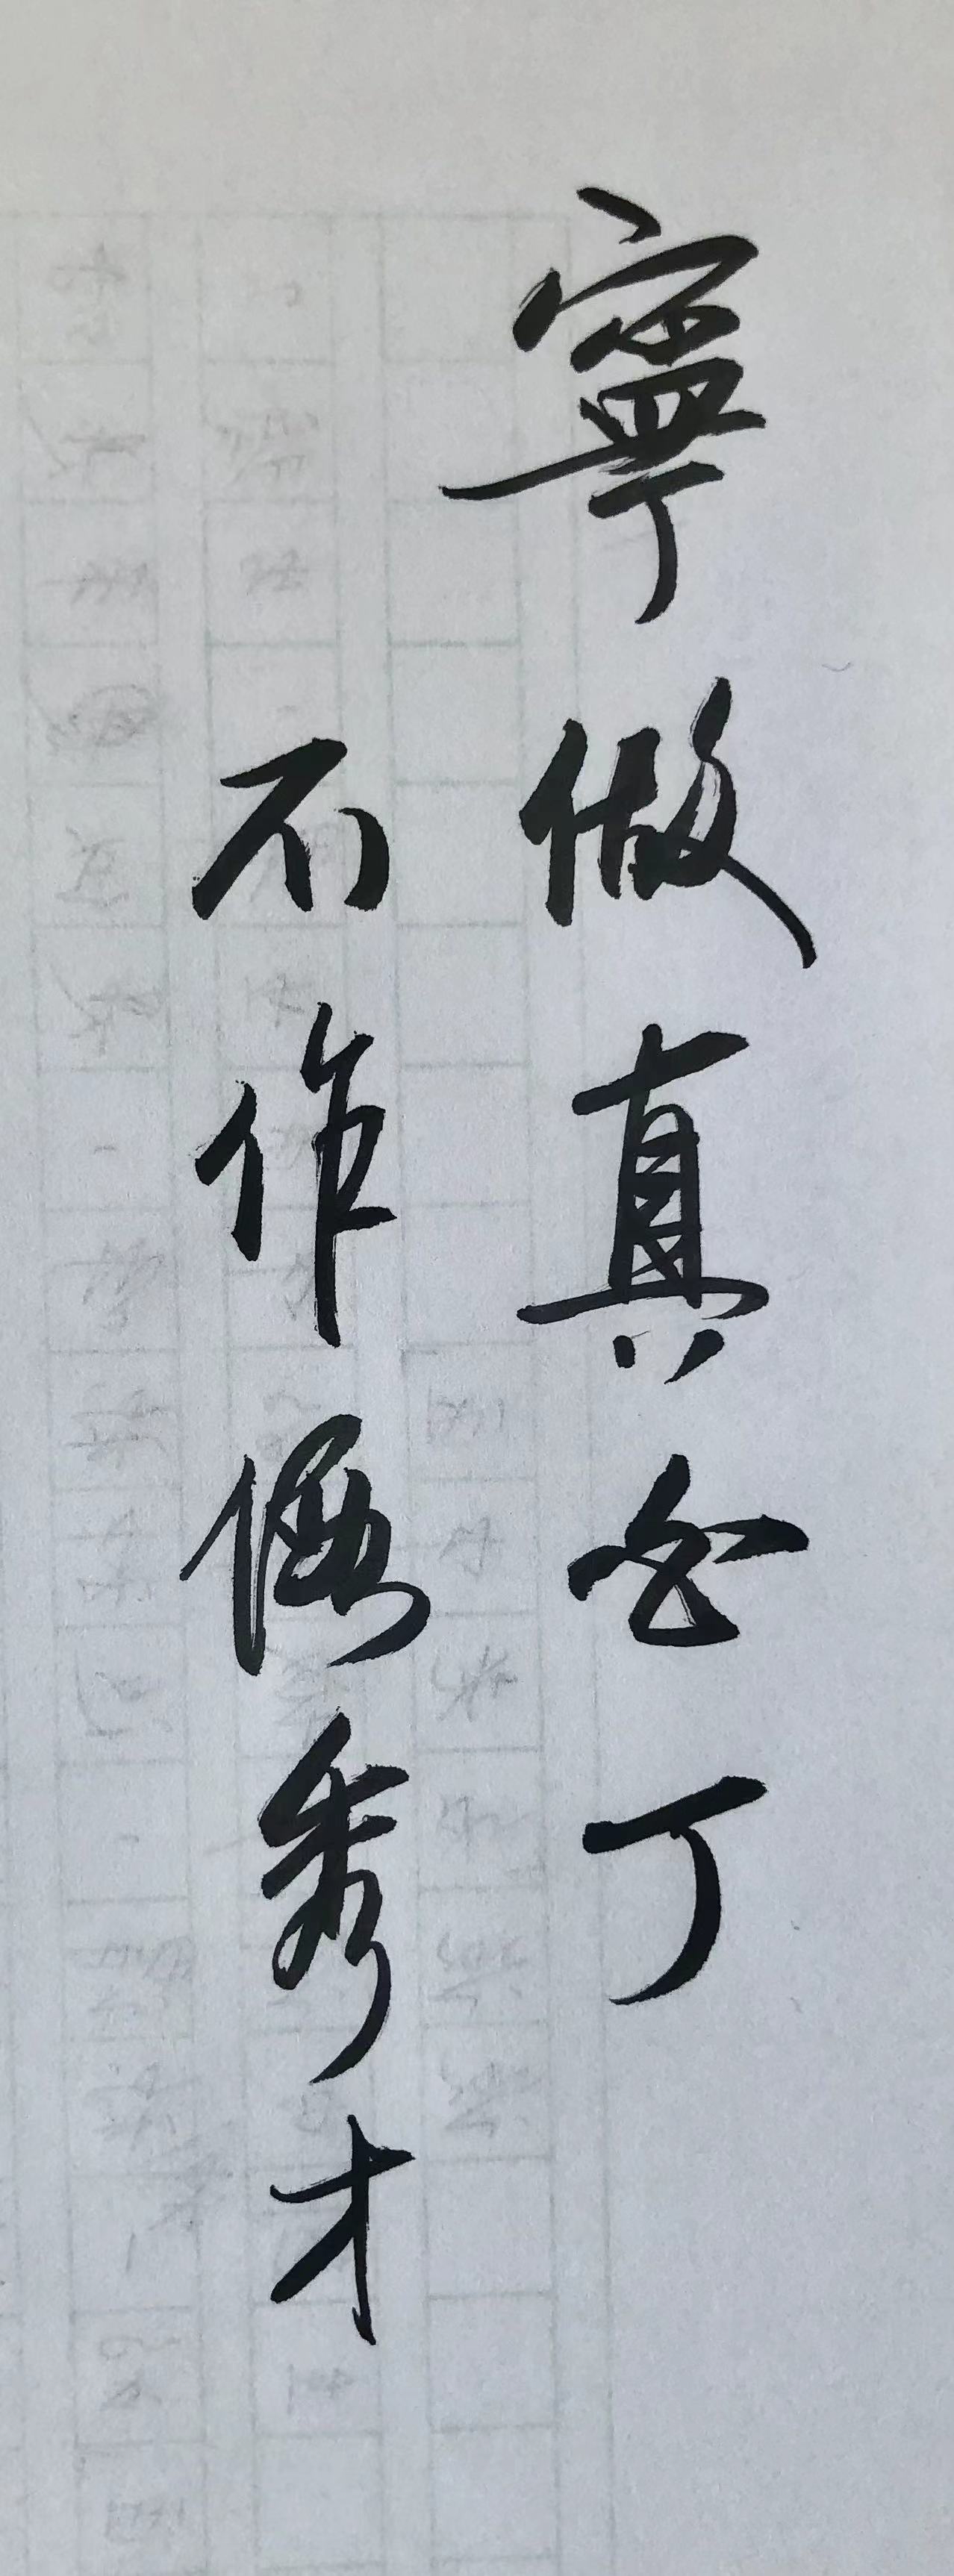 寧做真白丁
不作假秀才